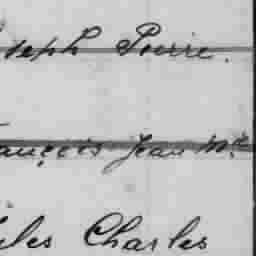 oseph Pierre.
ançois Jean Mie
ules Charles